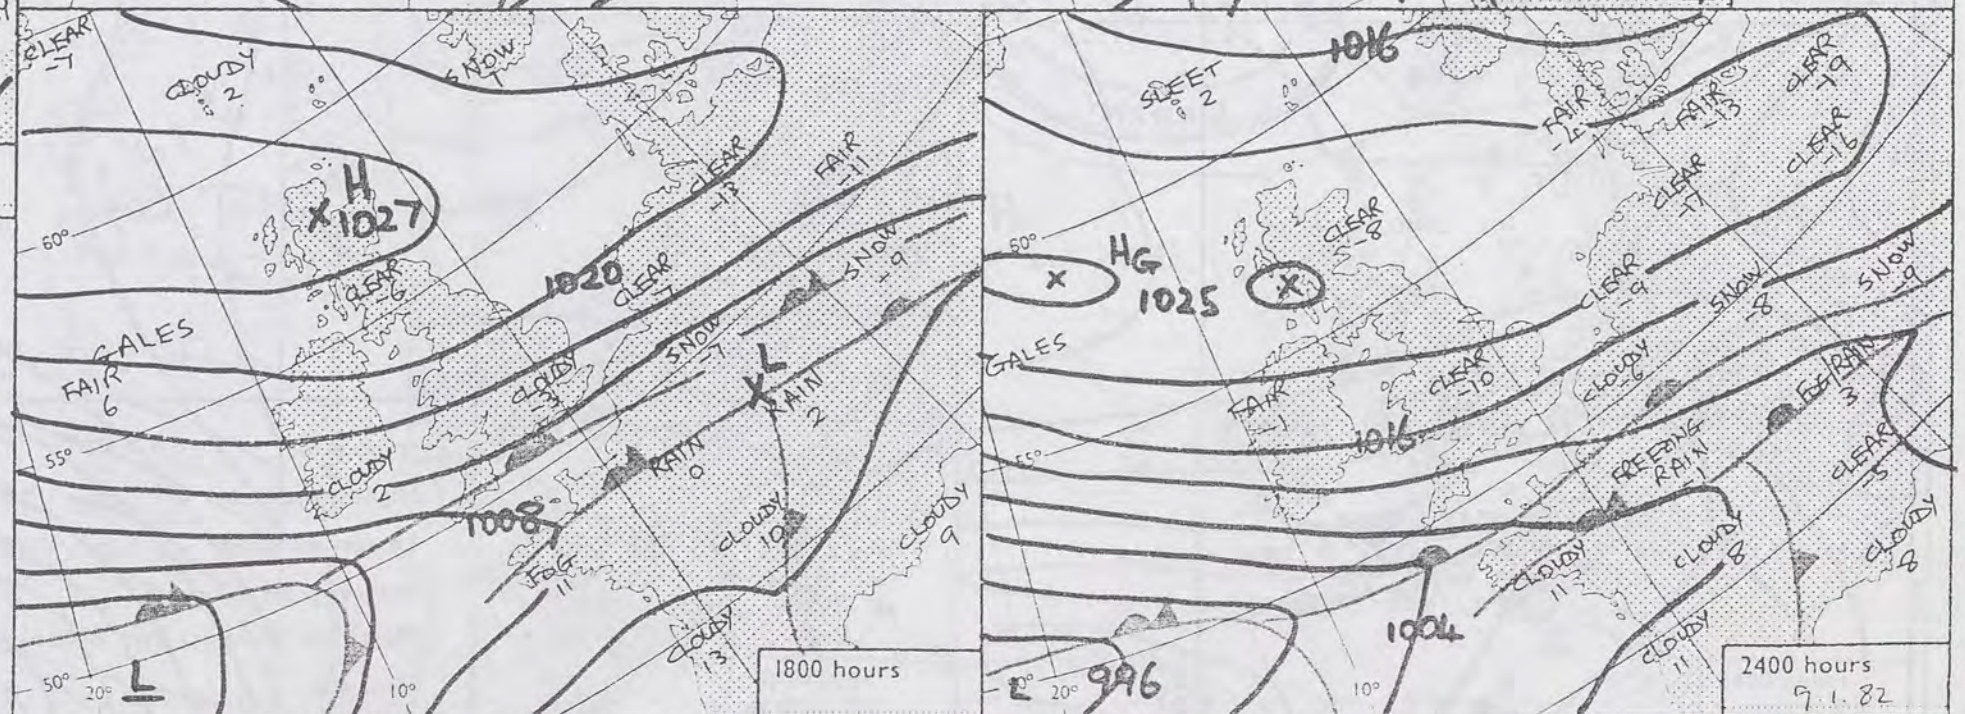 CLEAR
-7
CLOUDY
2
SNOW
1
H
1027
60°
CLEAR
-3
FAIR
-11
CLEAR
-6
1020
CLEAR
-7
SNOW
-9
GALES
FAIR
6
SNOW
-7
CLOUDY
-3
L
RAIN
2
55°
CLOUDY
2
RAIN
0
1008
CLOUDY
10
CLOUDY
9
FOG
11
CLOUDY
13
50°
20°
L
10°
1800 hours
1016
SLEET
2
FAIR
FAIR
-13
CLEAR
-19
CLEAR
-16
CLEAR
-17
CLEAR
-8
60°
HG
1025
CLEAR
-9
SNOW
-8
SNOW
-9
GALES
FAIR
CLEAR
-10
CLOUDY
-6
FOG/RAIN
3
1016
55°
FREEZING
RAIN
-1
CLEAR
-5
CLOUDY
11
CLOUDY
8
CLOUDY
8
1004
CLOUDY
11
20°
996
10°
2400 hours
9.1.82